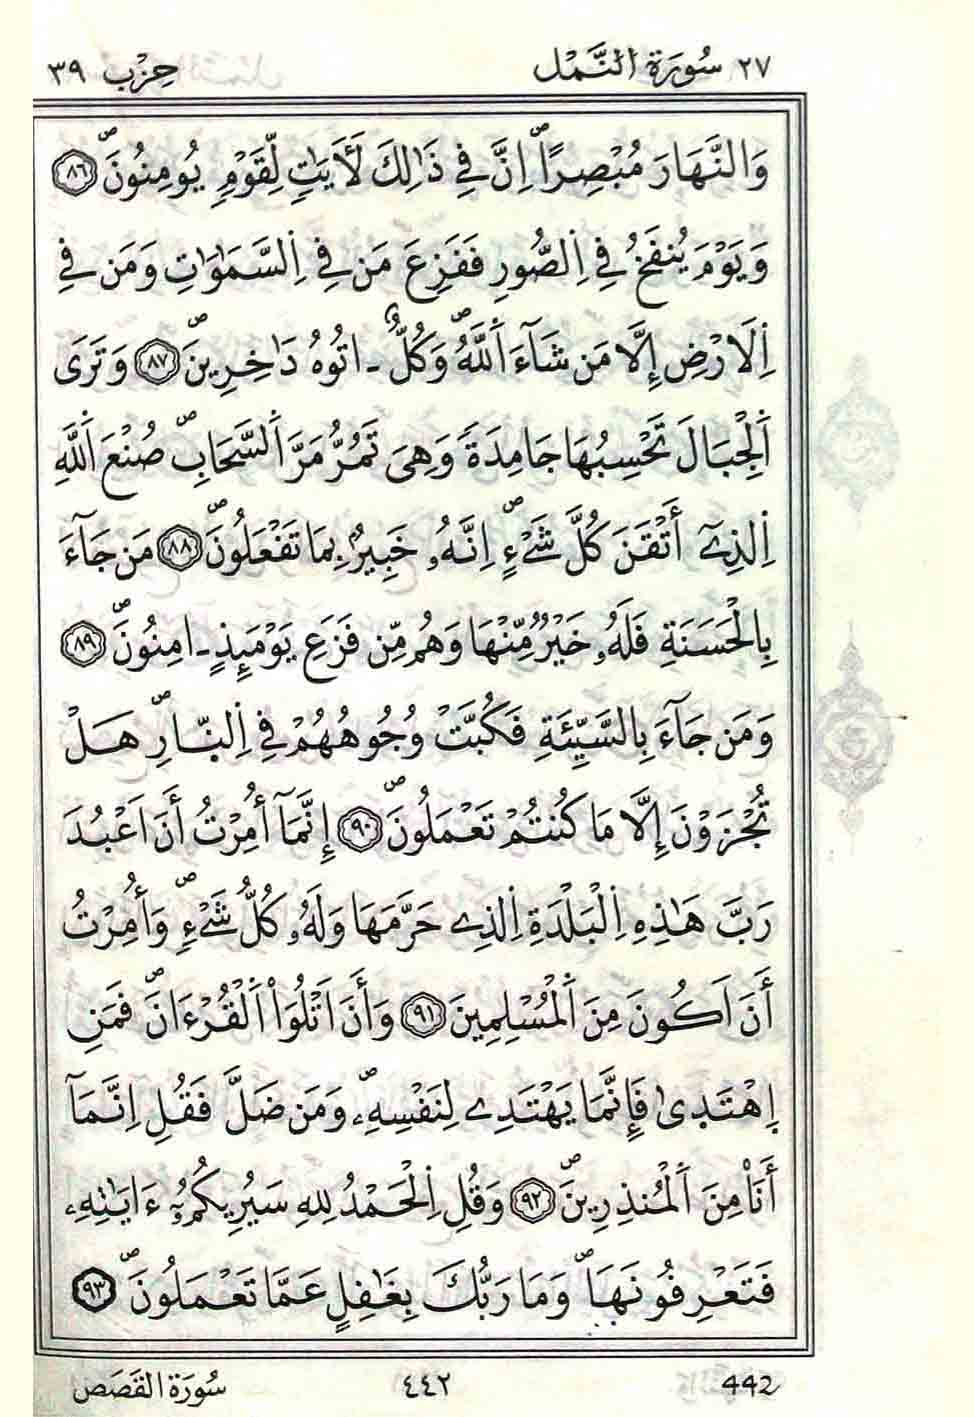 ٢٧ سُورَةُ النَّمْل حِزْب ٣٩
وَالنَّهَارَ مُبْصِراًۖ اِنَّ فِے ذَٰلِكَ لَأٓيَٰتٖ لِّقَوْمٖ يُومِنُونَۖ ٨٦
وَيَوْمَ يُنفَخُ فِے اِ۬لصُّورِ فَفَزِعَ مَن فِے اِ۬لسَّمَٰوَٰتِ وَمَن فِے
اِ۬لَارْضِ إِلَّا مَن شَآءَ اَ۬للَّهُۖ وَكُلٌّ ـ اتُوهُ دَٰخِرِينَۖ ٨٧ وَتَرَي
اَ۬لْجِبَالَ تَحْسِبُهَا جَامِدَةٗ وَهِيَ تَمُرُّ مَرَّ اَ۬لسَّحَابِۖ صُنْعَ اَ۬للَّهِ
اِ۬لذِےٓ أَتْقَنَ كُلَّ شَےْءٍۖ اِنَّهُۥ خَبِيرُۢ بِمَا تَفْعَلُونَۖ ٨٨ مَن جَآءَ
بِالْحَسَنَةِ فَلَهُۥ خَيْرٞ مِّنْهَا وَهُم مِّن فَزَعِ يَوْمَئِذٍ ـ اٰمِنُونَۖ ٨٩
وَمَن جَآءَ بِالسَّيِّئَةِ فَكُبَّتْ وُجُوهُهُمْ فِے اِ۬لنّ۪ارِۖ هَلْ
تُجْزَوْنَ إِلَّا مَا كُنتُمْ تَعْمَلُونَۖ ٩٠ إِنَّمَآ أُمِرْتُ أَنَ اَعْبُدَ
رَبَّ هَٰذِهِ اِ۬لْبَلْدَةِ اِ۬لذِے حَرَّمَهَا وَلَهُۥ كُلُّ شَےْءٖۖ وَأُمِرْتُ
أَنَ اَكُونَ مِنَ اَ۬لْمُسْلِمِينَ ٩١ وَأَنَ اَتْلُوَاْ اَ۬لْقُرْءَانَۖ فَمَنِ
اِ۪هْتَد۪يٰ فَإِنَّمَا يَهْتَدِے لِنَفْسِهِۦۖ وَمَن ضَلَّ فَقُلِ اِنَّمَآ
أَنَا۠ مِنَ اَ۬لْمُنذِرِينَۖ ٩٢ وَقُلِ اِ۬لْحَمْدُ لِلهِ سَيُرِيكُمُۥٓ ءَايَٰتِهِۦ
فَتَعْرِفُونَهَاۖ وَمَا رَبُّكَ بِغَٰفِلٍ عَمَّا تَعْمَلُونَۖ ٩٣
442 ٤٤٢ سُورَةُ القَصَصِ